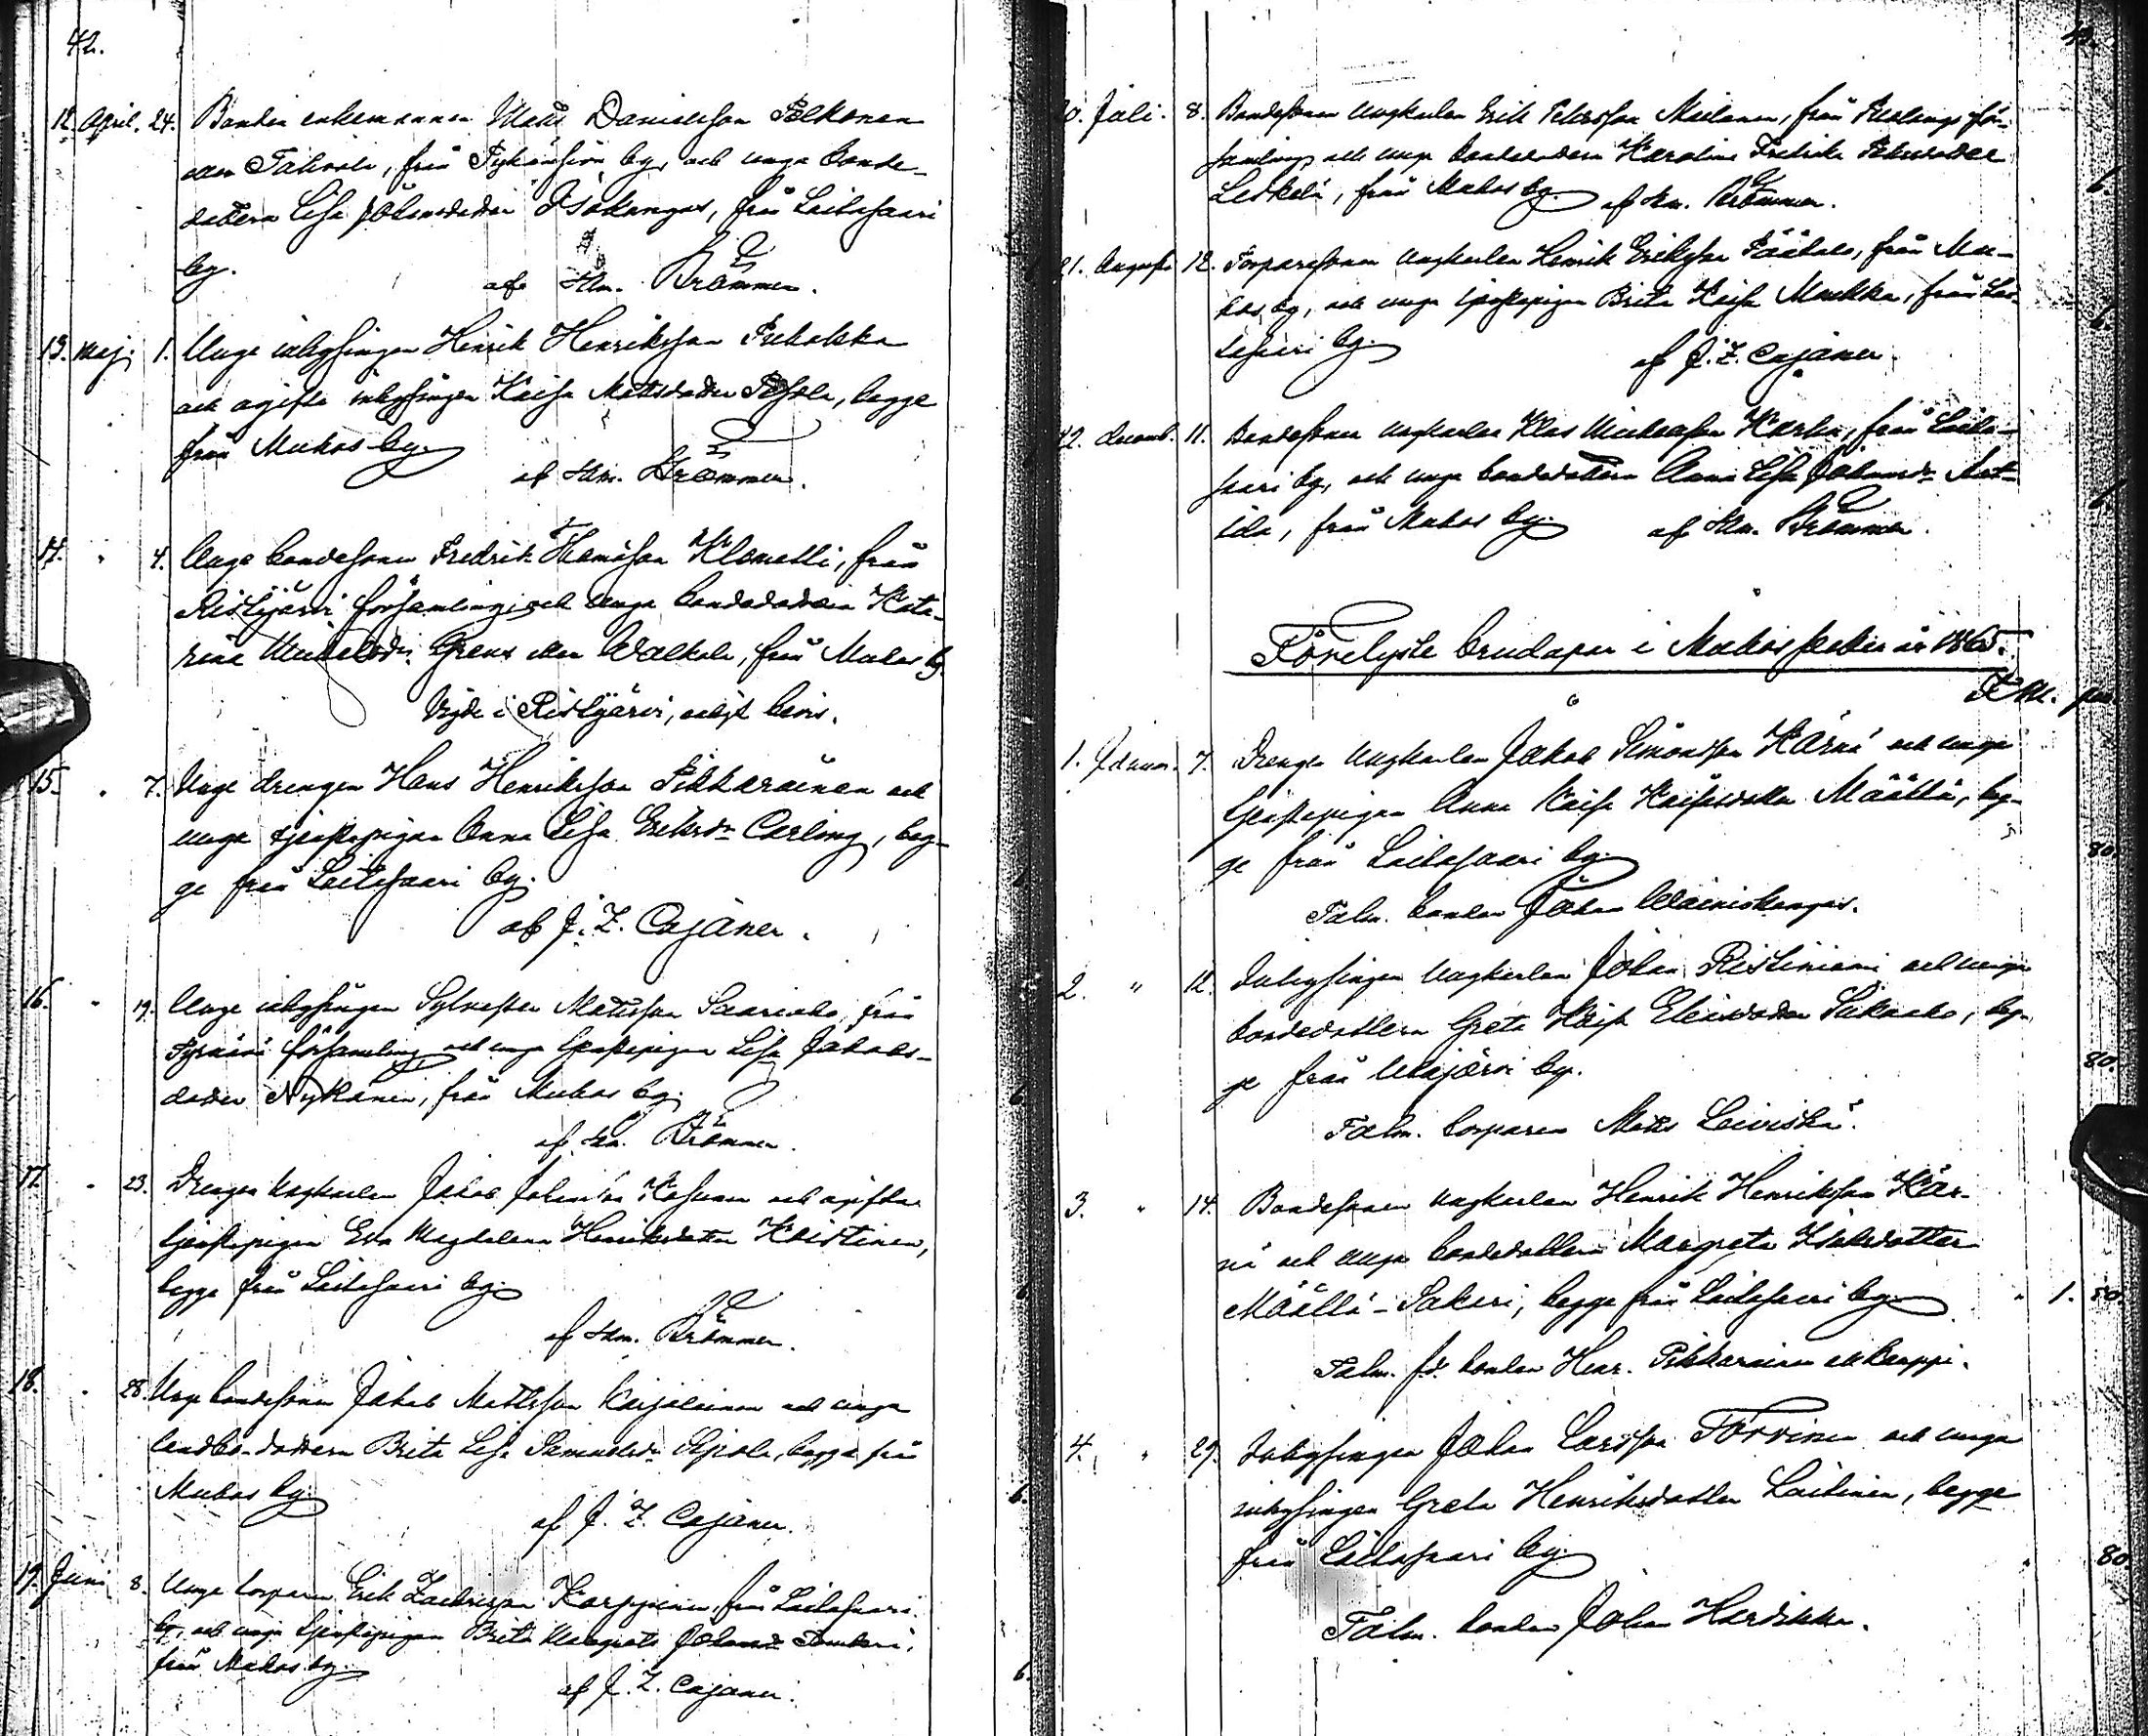 42.
12. April. 24. Bonden enkemannen Matts Danielsson Pelkonen
eller Tahvola, från Pyhänsivu by, och unga bonde-
dottern Lisa Johansdotter Isokangas, från Laitasaari
by.
af Klm. Krämmer.
13. Maj. 1. Unge inhysingen Henrik Henriksson
och ogifta inhysingen Kaisa Mattsdotter, begge
från Muhos by.
af Klm. Krämmer.
14. " 4. Unge bondesonen Fredrik Thomasson Klemetti, från
Ristijärvi församling, och unga bondedottern Kata-
rina Grens eller Walkola, från Muhos by.
Vigde i Ristijärvi, enligt bevis.
15. " 7. Unge drengen Hans Henriksson Pikkarainen och
unga tjenstepigan Anna Lisa Eriksdr Carling, beg-
ge från Laitasaari by.
af J. Z. Cajaner.
16. " 19. Unge inhysingen Sylvester Mattsson Saarenaho, från
Tyrnävä församling, och unga tjenstepigan Lisa Jakobs-
dotter Nykänen, från Muhos by.
af Klm. Krämmer.
17. " 23. Drengen ungkarlen Jakob Johansson och ogifta
tjenstepigan Eva Magdalena Henriksdotter Koistinen,
begge från Laitasaari by.
af Klm. Krämmer.
18. " 28. Unge bondesonen Jakob Mattsson Karjalainen och unga
landbo-dottern Brita Lisa Samuelsdr Seppola, begge från
Muhos by.
af J. Z. Cajaner.
6.
19. Juni 8. Unge torparen Erik Zachrisson Karppinen, från Laitasaari
by, och unga tjenstepigan Brita Margreta Johansdr
från Muhos by.
af J. Z. Cajaner.
6.
20. Juli. 8. Bondesonen ungkarlen Erik Petersson Meilanen, från för-
samling, och unga bondedottern Karolina Fredrika
Leskelä, från Muhos by. af Klm. Krämmer.
6.
21. Augusti 12. Torparesonen ungkarlen Henrik Eriksson Päätalo, från Mu-
hos by, och unga tjenstepigan Brita Kaisa Markka, från Lai-
tasaari by.
af J. Z. Cajaner.
6.
22. Decemb. 11. Bondesonen ungkarlen Klas Michelsson Karhu, från Laita-
saari by, och unga bondedottern Anna Lisa Johansdr Ant-
tila, från Muhos by. af Klm. Krämmer.
6.
Förelyste brudapar i Muhos socken år 1865.
F. M. pni.
1. Januar. 7. Drengen ungkarlen Jakob Simonsson Kärnä och unga
tjenstepigan Anna Kaisa Kaisasdotter Määttä, beg-
ge från Laitasaari by. 80.
Talm. bonden Johan Wäiniskangas.
2. " 12. Inhysingen ungkarlen Johan Ristiniemi och unga
bondedottern Greta Kaisa Eliasdotter Sakaaho, beg-
ge från Utajärvi by. 80.
Talm. torparen Matts Leiviskä.
3. " 14. Bondesonen ungkarlen Henrik Henriksson Kär-
nä och unga bondedottern Margreta Isaksdotter
Määttä-Sakeri, begge från Laitasaari by. " 1. 50.
Talm. fd. bonden Henr. Pikkarainen
4. " 29. Inhysingen Johan Larsson Torvinen och unga
inhysingen Greta Henriksdotter Laitinen, begge
från Laitasaari by. " 80.
Talm. bonden Johan Hardikka.